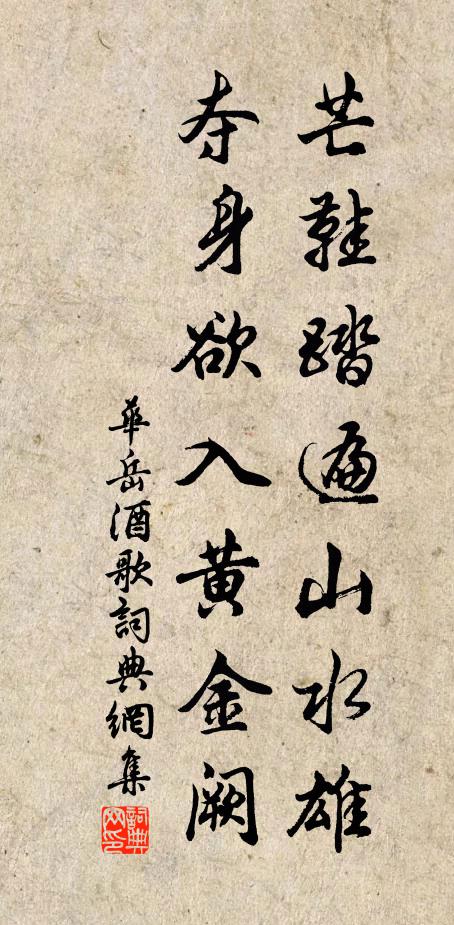 芒鞋踏遍山水雄
夺身欲入黄金阙
華岳酒歌詞典網集
詞典網印